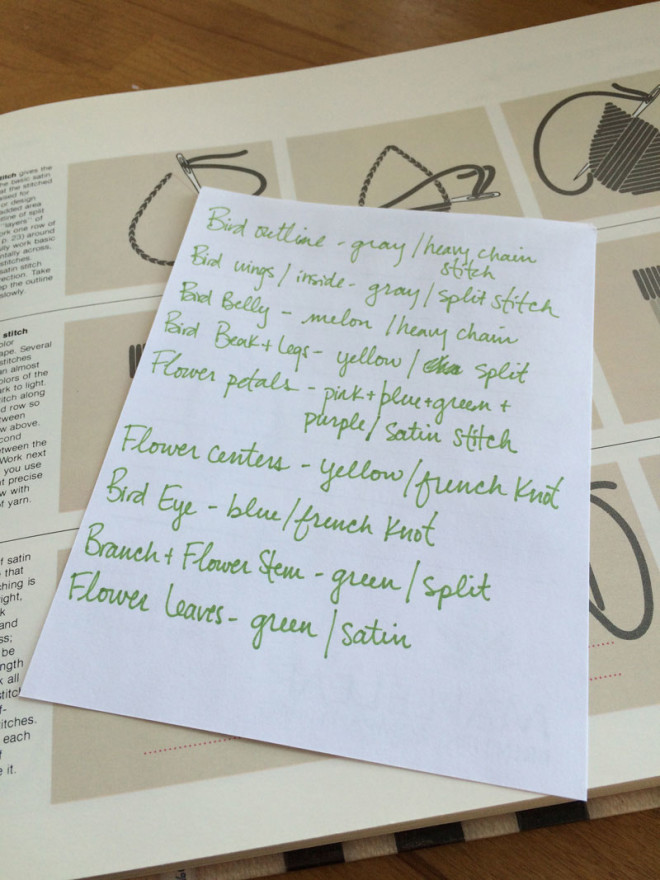 Bird outline - gray / heavy chain
stitch
Bird wings / inside - gray / split stitch
Bird Belly - melon / heavy chain
Bird Beak + Legs - yellow / split
Flower petals - pink + blue + green +
purple / satin stitch
Flower centers - yellow / french knot
Bird Eye - blue / french knot
Branch + Flower Stem - green / split
Flower leaves - green / satin
stitch gives the
basic satin
the stitched
used for
or design
added area
line of split
"layers" of
work one row of
p. 23) around
work basic
across,
stitches.
satin stitch
direction. Take
the outline
slowly.
stitch
color
shape. Several
stitches
an almost
colors of the
dark to light.
stitch along
row so
between
above.
second
between the
Work next
you use
precise
with
of yarn.
of satin
that
stitching is
right,
and
be
length
all
stitch
stitches.
each
it.